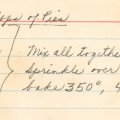 Tops of Pies
Mix all togethe
sprinkle over
bake 350°, 4